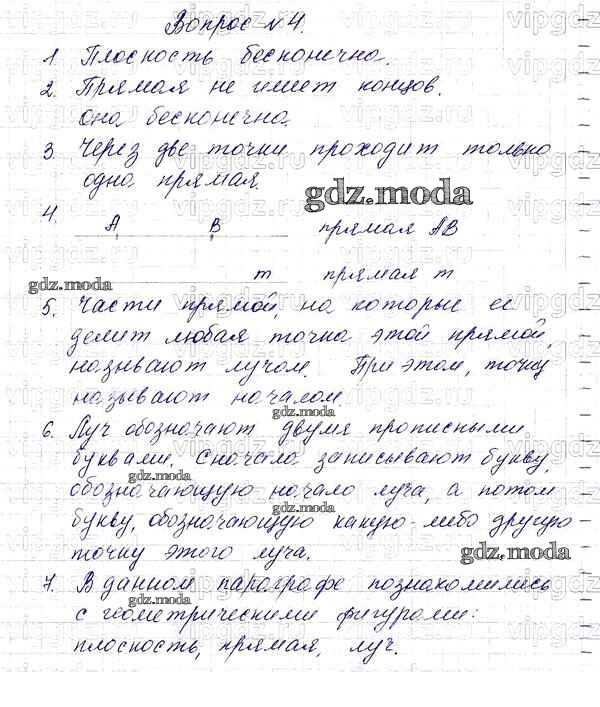 Вопрос №4.
1. Плоскость бесконечна.
2. Прямая не имеет концов.
она бесконечна.
3. Через две точки проходит только
одна прямая.
gdz.moda
4. A B прямая AB
m прямая m
gdz.moda
5. Части прямой, на которые её
делит любая точка этой прямой,
называют лучом. При этом, точку
называют началом.
gdz.moda
6. Луч обозначают двумя прописными
буквами. Сначала записывают букву,
gdz.moda
обозначающую начало луча, а потом
gdz.moda
букву, обозначающую какую-либо другую
точку этого луча.
gdz.moda
7. В данном параграфе познакомились
gdz.moda
с геометрическими фигурами:
плоскость, прямая, луч.